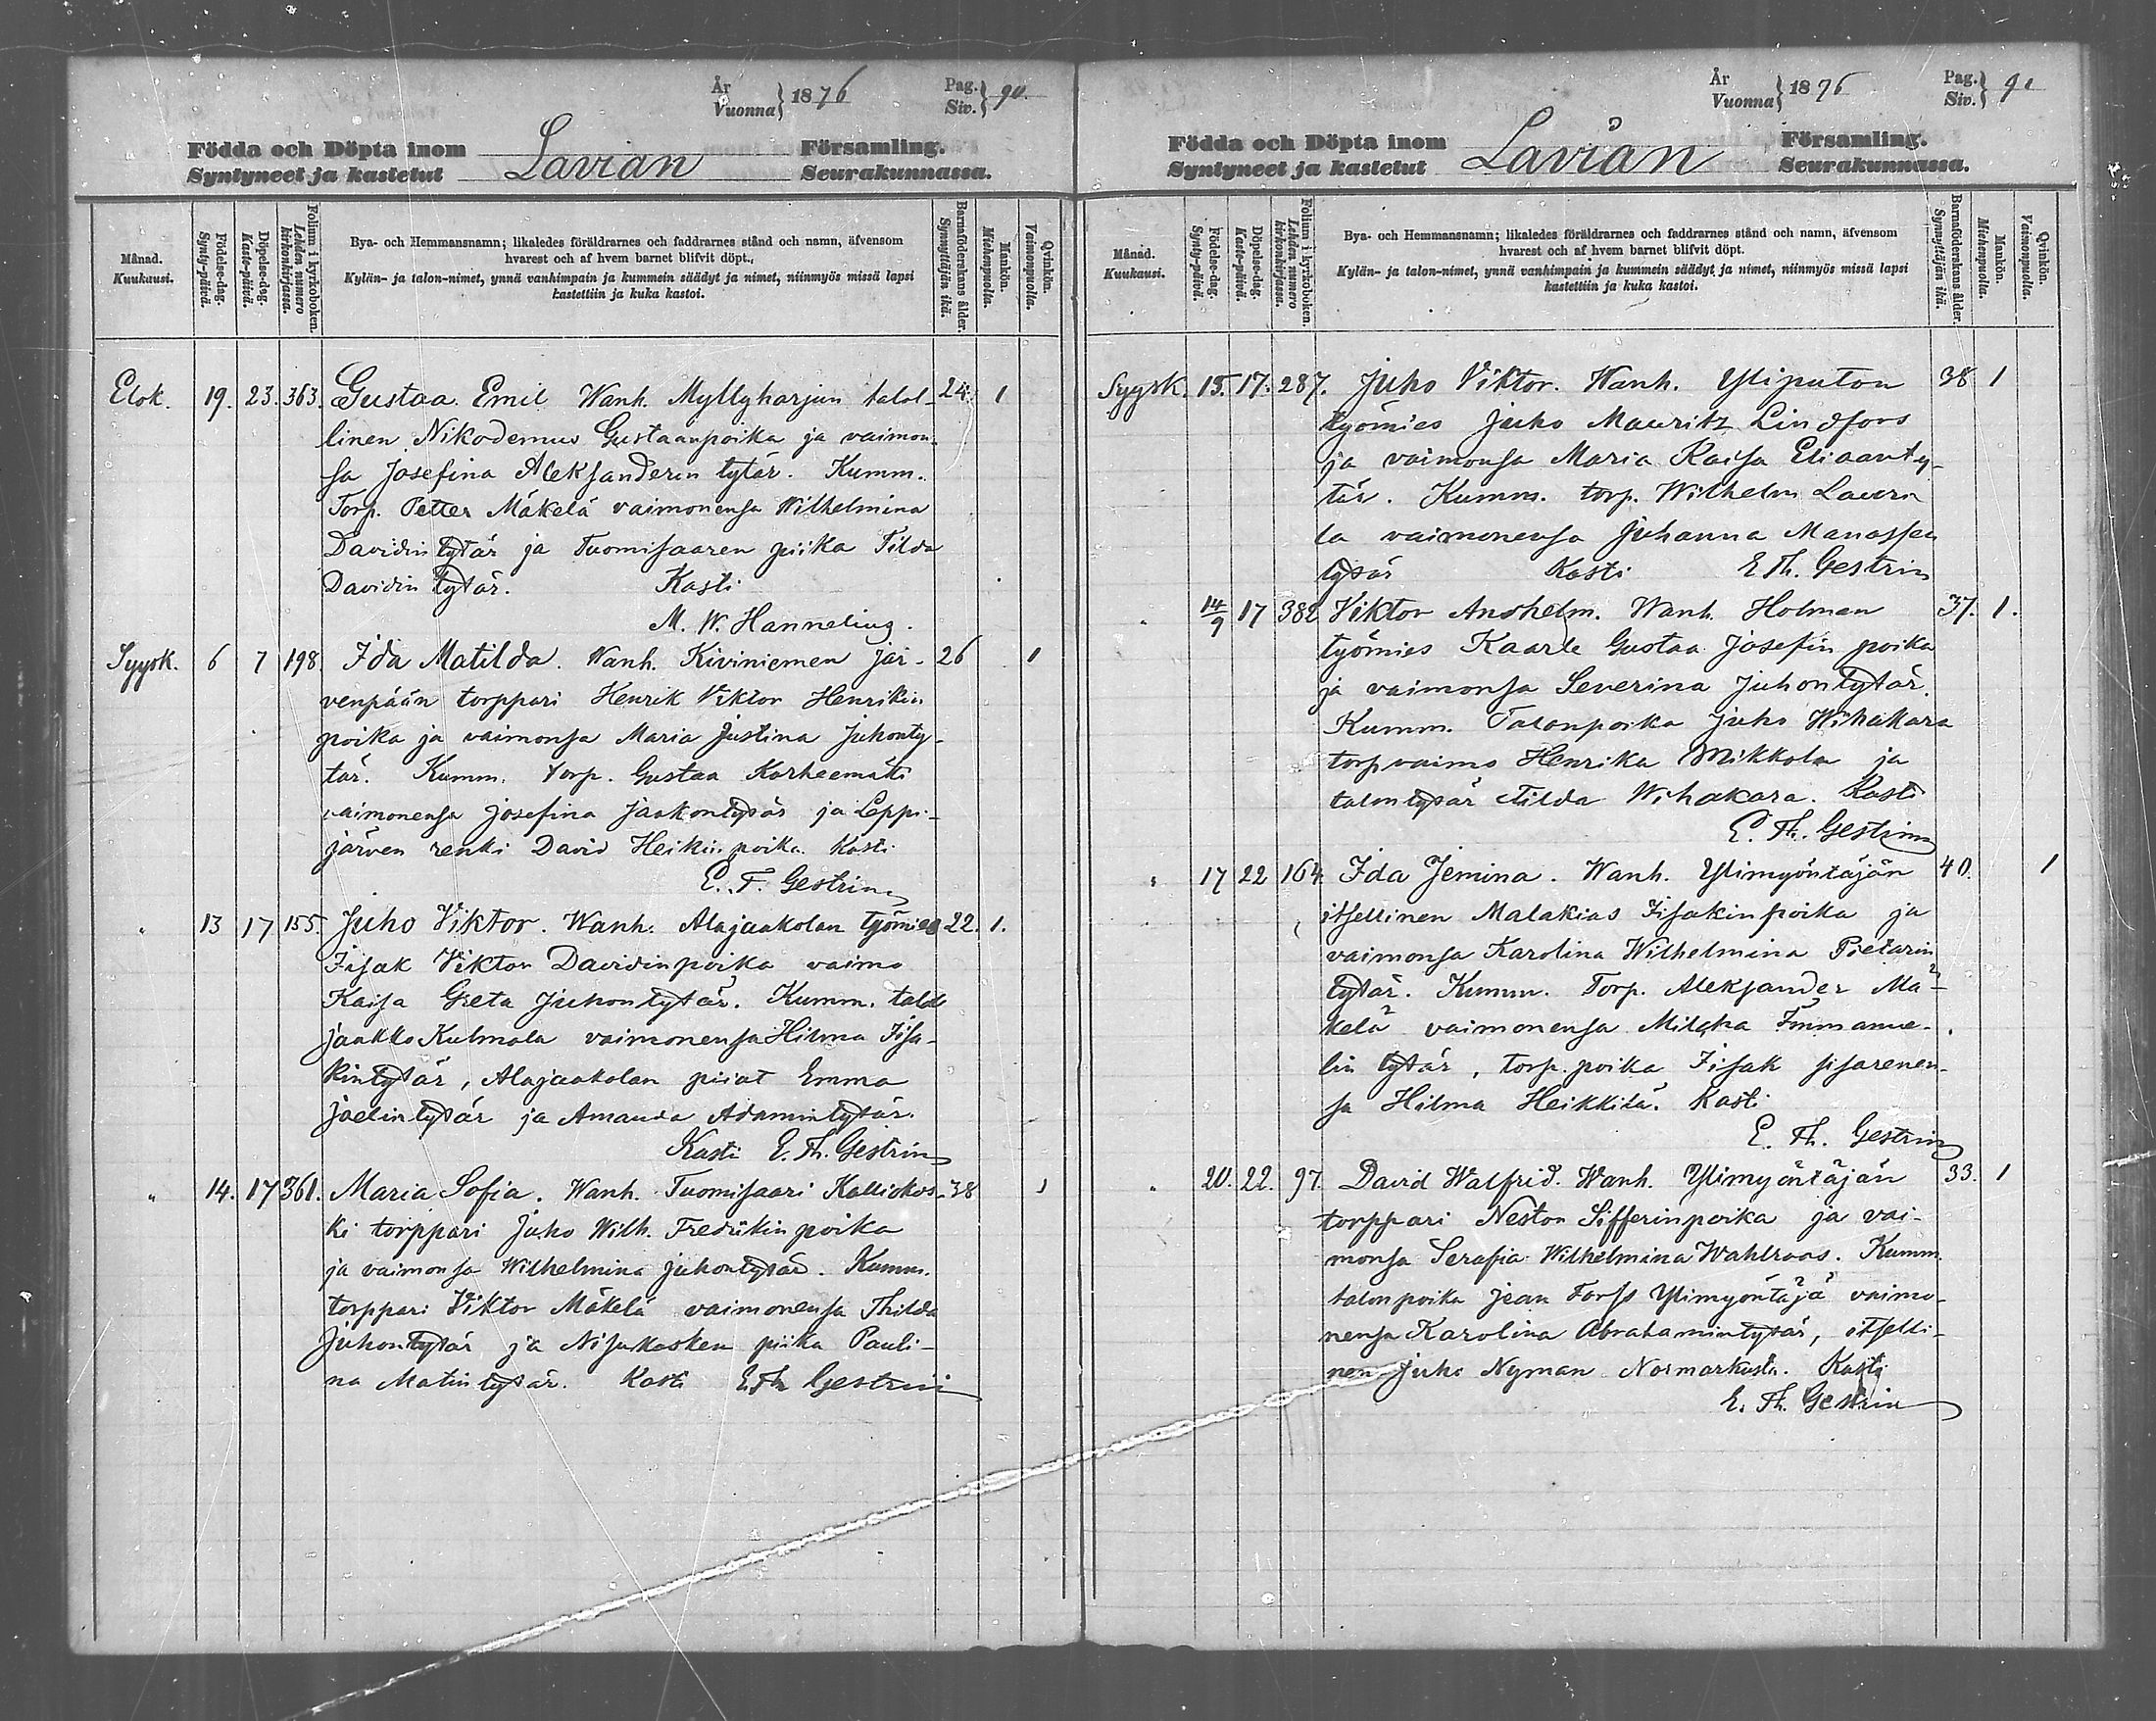 År
Vuonna } 1876
Pag.
Siv. } 90.
Födda och Döpta inom
Syntyneet ja kastetut
Lavian
Församling.
Seurakunnassa.
Månad.
Kuukausi.
Födelse-dag.
Synty-päivä.
Döpelse-dag.
Kaste-päivä.
Folium i kyrkoboken.
Lehden numero
kirkonkirjassa.
Bya- och Hemmansnamn; likaledes föräldrarnes och faddrarnes stånd och namn, äfvensom
hvarest och af hvem barnet blifvit döpt.
Kylän- ja talon-nimet, ynnä vanhimpain ja kummein säädyt ja nimet, niinmyös missä lapsi
kastettiin ja kuka kastoi.
Barnaföderskans ålder.
Synnyttäjän ikä.
Mankön.
Miehenpuolia.
Qvinkön.
Vaimonpuolia.
Elok. 19. 23. 363. Gustaa Emil Wanh. Myllyharjun talol- 24. 1
linen Nikodemus Gustaanpoika ja vaimon-
sa Josefina Aleksanderin tytär. Kumm.
Torp. Petter Mäkelä vaimonensa Wilhelmina
Davidin tytär ja Tuomisaaren piika Tilda
Davidin tytär. Kasti
M. W. Hanneling.
Syysk. 6 7 198 Ida Matilda. Wanh. Kiviniemen Jär- 26 1
venpään torppari Henrik Viktor Henrikin
poika ja vaimonsa Maria Justina Juhonty-
tär. Kumm. torp. Gustaa Korheemäki
vaimonensa Josefina Jaakontytär ja Leppi-
järven renki David Heikin poika. Kasti
E. T. Gestrin
" 13 17 155. Juho Viktor. Wanh. Alajaakolan työmies 22. 1.
Iisak Viktor Davidinpoika vaimo
Kaisa Greta Juhontytär. Kumm. talol
Jaakko Kulmala vaimonensa Hilma Iisa-
kintytär, Alajaakolan piiat Emma
Joelintytär ja Amanda Adamintytär.
Kasti E. Th. Gestrin
" 14. 17 361. Maria Sofia. Wanh. Tuomisaari Kalliokos- 38 1
ki torppari Juho Wilh. Fredrikin poika
ja vaimonsa Wilhelmina Juhontytär. Kumm.
torppari Viktor Mäkelä vaimonensa Thilda
Juhontytär ja Nisukosken piika Pauli-
na Matintytär. Kasti E Th Gestrin
År
Vuonna } 1876
Pag.
Siv. } 91
Födda och Döpta inom
Syntyneet ja kastetut
Lavian
Församling.
Seurakunnassa.
Månad.
Kuukausi.
Födelse-dag.
Synty-päivä.
Döpelse-dag.
Kaste-päivä.
Folium i kyrkoboken.
Lehden numero
kirkonkirjassa.
Bya- och Hemmansnamn; likaledes föräldrarnes och faddrarnes stånd och namn, äfvensom
hvarest och af hvem barnet blifvit döpt.
Kylän- ja talon-nimet, ynnä vanhimpain ja kummein säädyt ja nimet, niinmyös missä lapsi
kastettiin ja kuka kastoi.
Barnaföderskans ålder.
Synnyttäjän ikä.
Mankön.
Miehenpuolia.
Qvinkön.
Vaimonpuolia.
Syysk. 15. 17. 287. Juho Viktor. Wanh. Yliputon 38 1
työmies Juho Mauritz Lindfors
ja vaimonsa Maria Kaisa Eliaanty-
tär. Kumm. torp. Wilhelm Lavern
la vaimonensa Juhanna Manassen
tytär Kasti E Th. Gestrin
14/9 17 382 Viktor Anshelm. Wanh. Holman 37. 1.
työmies Kaarle Gustaa Josefin poika
ja vaimonsa Severina Juhontytär.
Kumm. Talonpoika Juho Wihakara
torp vaimo Henrika Mikkola ja
talontytär Tilda Wihakara. Kasti
E. Th. Gestrin
" 17 22 164. Ida Jemina. Wanh. Ylimyöntäjän 40. 1
itsellinen Malakias Iisakinpoika ja
vaimonsa Karolina Wilhelmina Pietarin
tytär. Kumm. Torp. Aleksander Mä-
kelä vaimonensa Milcha Immanue-
lin tytär, torp. poika Iisak sisarenen-
sa Hilma Heikkilä. Kasti
E. Th. Gestrin
" 20. 22. 97. David Walfrid. Wanh. Ylimyöntäjän 33. 1
torppari Nestor Sifferinpoika ja vai-
monsa Serafia Wilhelmina Wahlroos. Kumm.
talonpoika Jean Forss Ylimyöntäjä vaimo-
nensa Karolina Abrahamintytär, itselli-
nen Juho Nyman Normarkusta. Kasti
E. Th. Gestrin